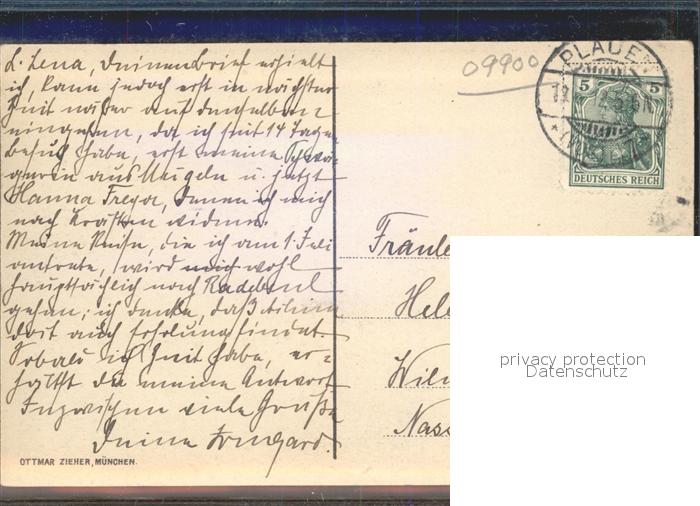 L. Lena, Deinen Brief erhielt
ich, kann jedoch erst in nächster
Zeit näher auf denselben
eingehen, da ich seit 14 Tagen
Besuch habe, erst meine Schwä-
gerin aus Mügeln u. jetzt
Hanna Freya, denen ich mich
nach Kräften widme.
Meine Reise, die ich am 1. Juli
antrete, wird mich wohl
hauptsächlich nach Radebeul
gehen; ich denke, daß
dort auch Erholung findet.
Sobald ich Zeit habe, er-
hältst du meine Antwort
Inzwischen viele Grüße
Deine Irmgard.
OTTMAR ZIEHER, MÜNCHEN.
09900
PLAUE
5 5
DEUTSCHES REICH
Fräule
Hel
Wil
Nass
privacy protection
Datenschutz